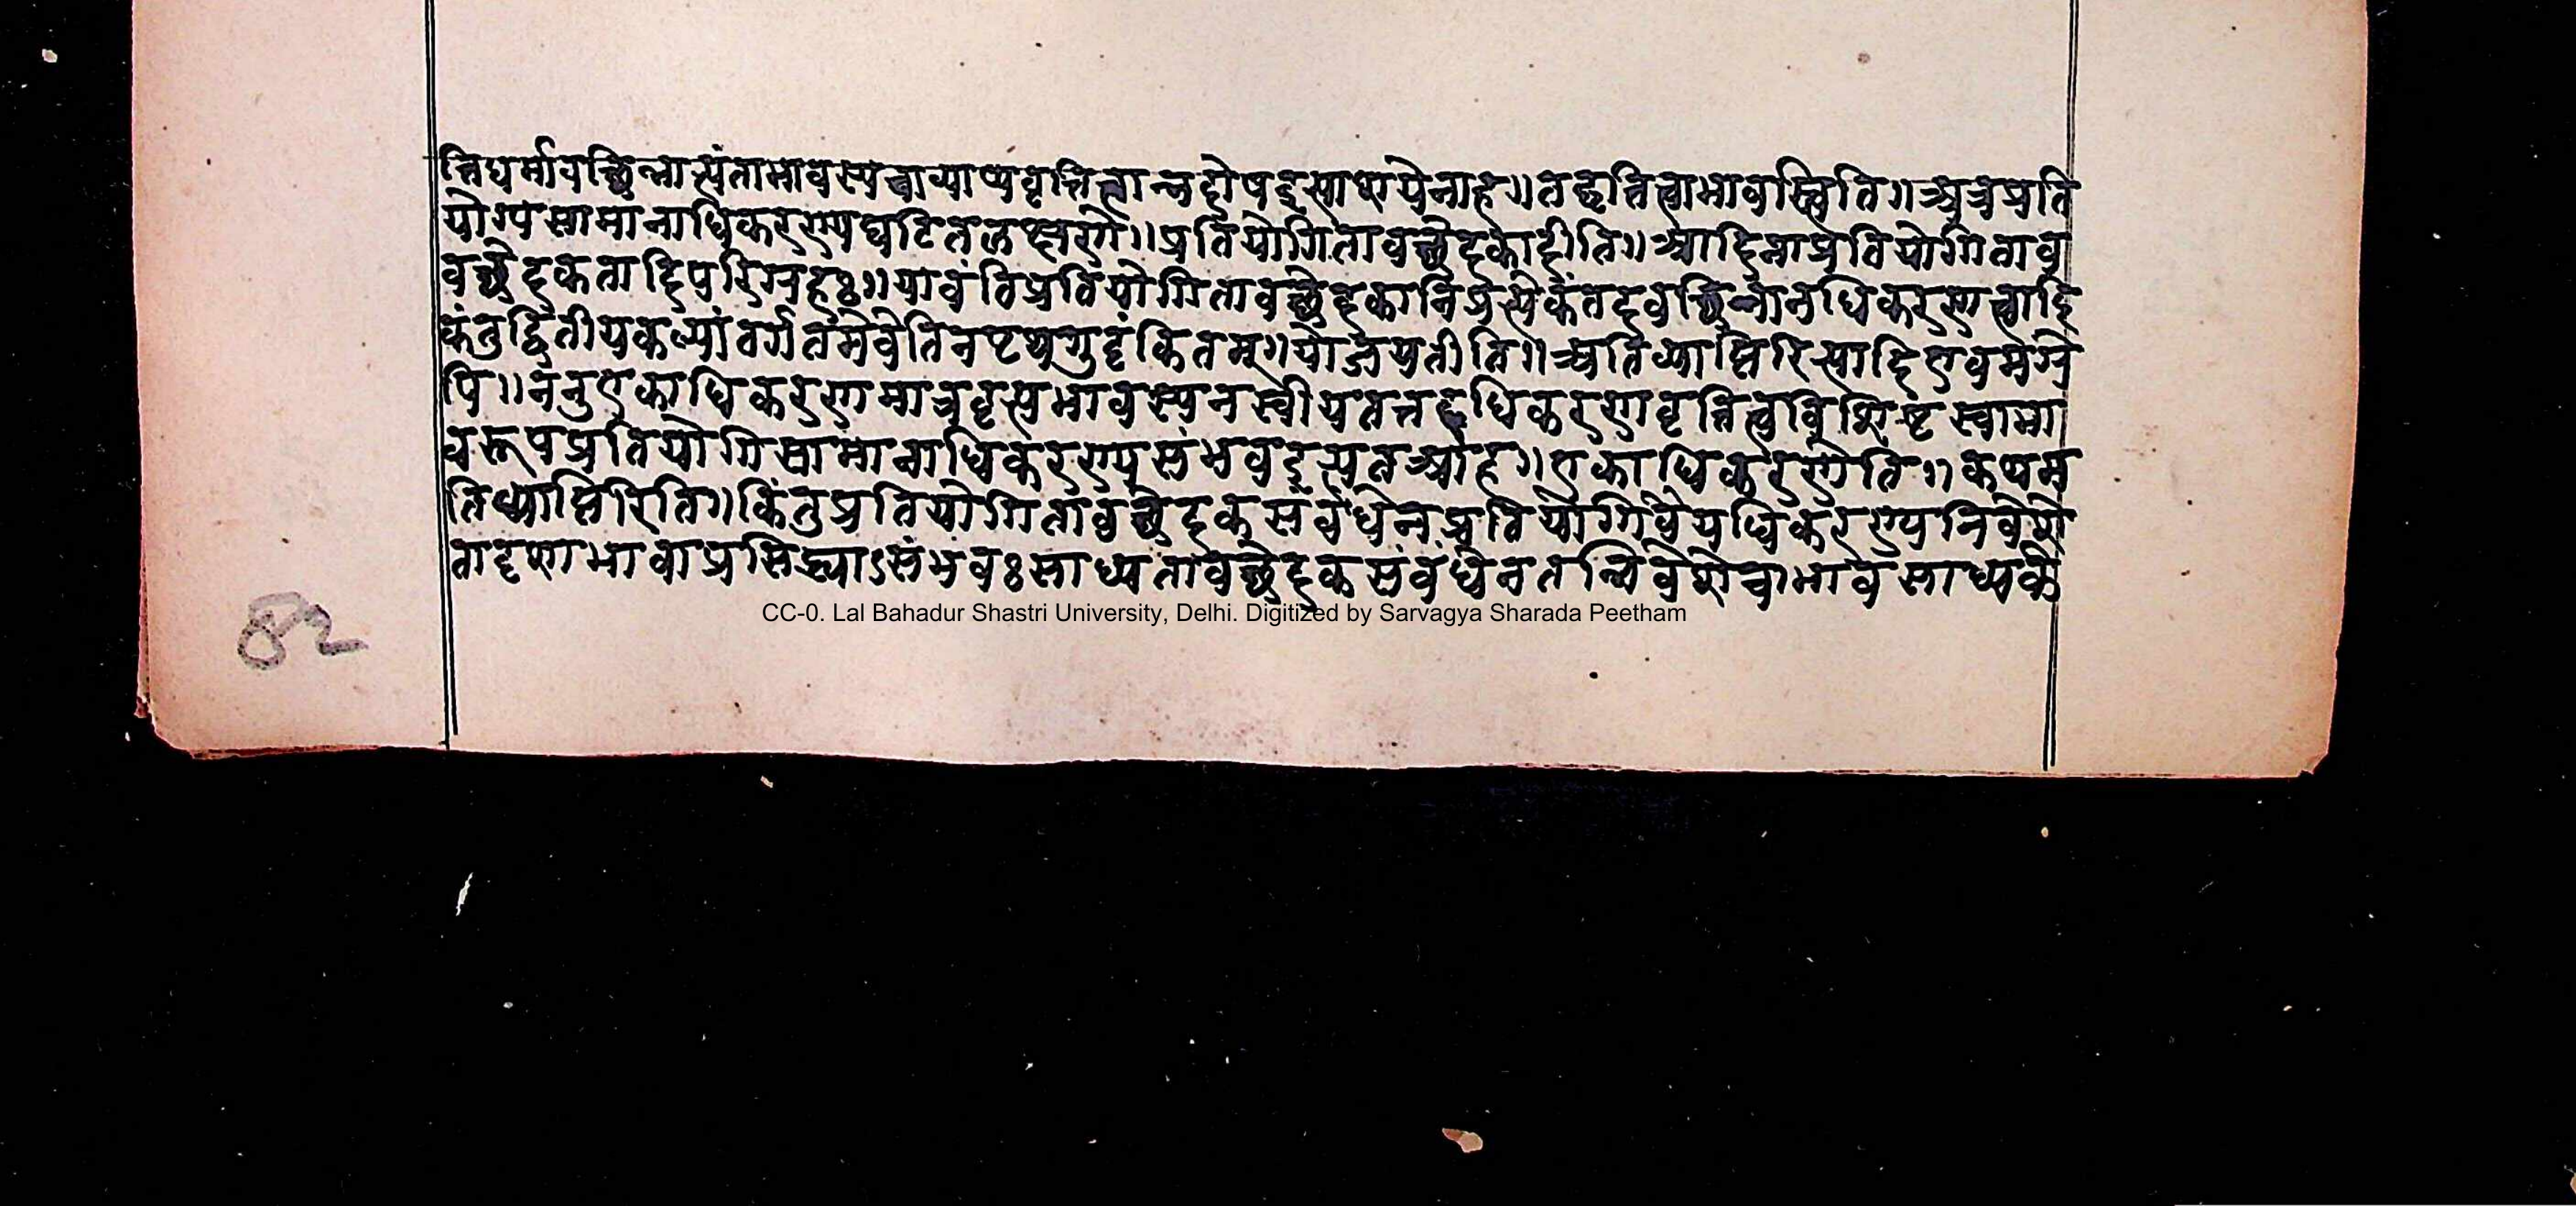 त्तिधर्मावच्छिन्नात्यंताभावस्यचाव्याप्यवृत्तित्वान्नदोषइत्याशयेनाह॥तद्वृत्तित्वाभावस्त्विति॥अत्रप्रति
योग्यसामानाधिकरण्यघटितलक्षणे॥प्रतियोगितावच्छेदकादीति॥आदिनाप्रतियोगिताव
वच्छेदकतादिपरिग्रहः॥यावंतिप्रतियोगितावच्छेदकानिप्रत्येकंतदवच्छिन्नानधिकरणत्वादि
कंतुद्वितीयकल्पांतर्गतमेवेतिनपृथगुट्टंकितम्॥योजयतीति॥अतिव्याप्तिरित्यादिएवमग्रे
पि॥ननुएकाधिकरणमात्रवृत्त्यभावस्यनस्वीयतत्तदधिकरणवृत्तित्वविशिष्टस्वाभा
वरूपप्रतियोगिसामानाधिकरण्यसंभवइत्यतआह॥एकाधिकरणेति॥कथम
तिव्याप्तिरिति॥किंतुप्रतियोगितावच्छेदकसंबंधेनप्रतियोगिवैयधिकरण्यनिवेशे
तादृशाभावाप्रसिद्ध्याऽसंभवःसाध्यतावच्छेदकसंबंधेनतन्निवेशेचाभावसाध्यके
82
CC-0. Lal Bahadur Shastri University, Delhi. Digitized by Sarvagya Sharada Peetham